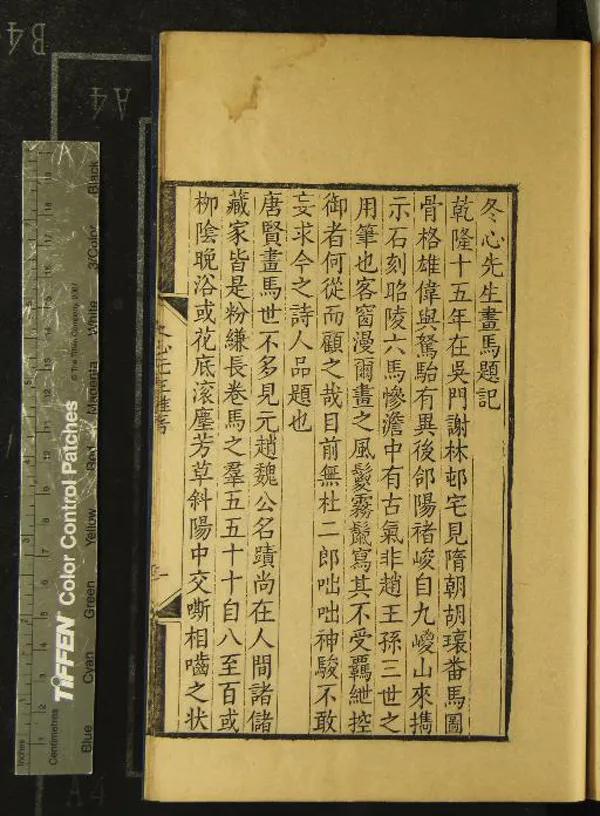 冬心先生畫馬題記
乾隆十五年在吳門謝林邨宅見隋朝胡瓌番馬圖
骨格雄偉與駑駘有異後郃陽褚峻自九嵕山來攜
示石刻昭陵六馬慘澹中有古氣非趙王孫三世之
用筆也客窗漫爾畫之風鬉霧鬣寫其不受羈紲控
御者何從而顧之哉目前無杜二郎咄咄神駿不敢
妄求今之詩人品題也
唐賢畫馬世不多見元趙魏公名蹟尚在人間諸儲
藏家皆是粉縑長卷馬之羣五五十十自八至百或
柳陰晚浴或花底滾塵芳草斜陽中交嘶相嚙之狀
B4
A4
A4
Inches
Centimetres
TIFFEN Color Control Patches
© The Tiffen Company, 2007
Blue
Cyan
Green
Yellow
Red
Magenta
White
3/Color
Black